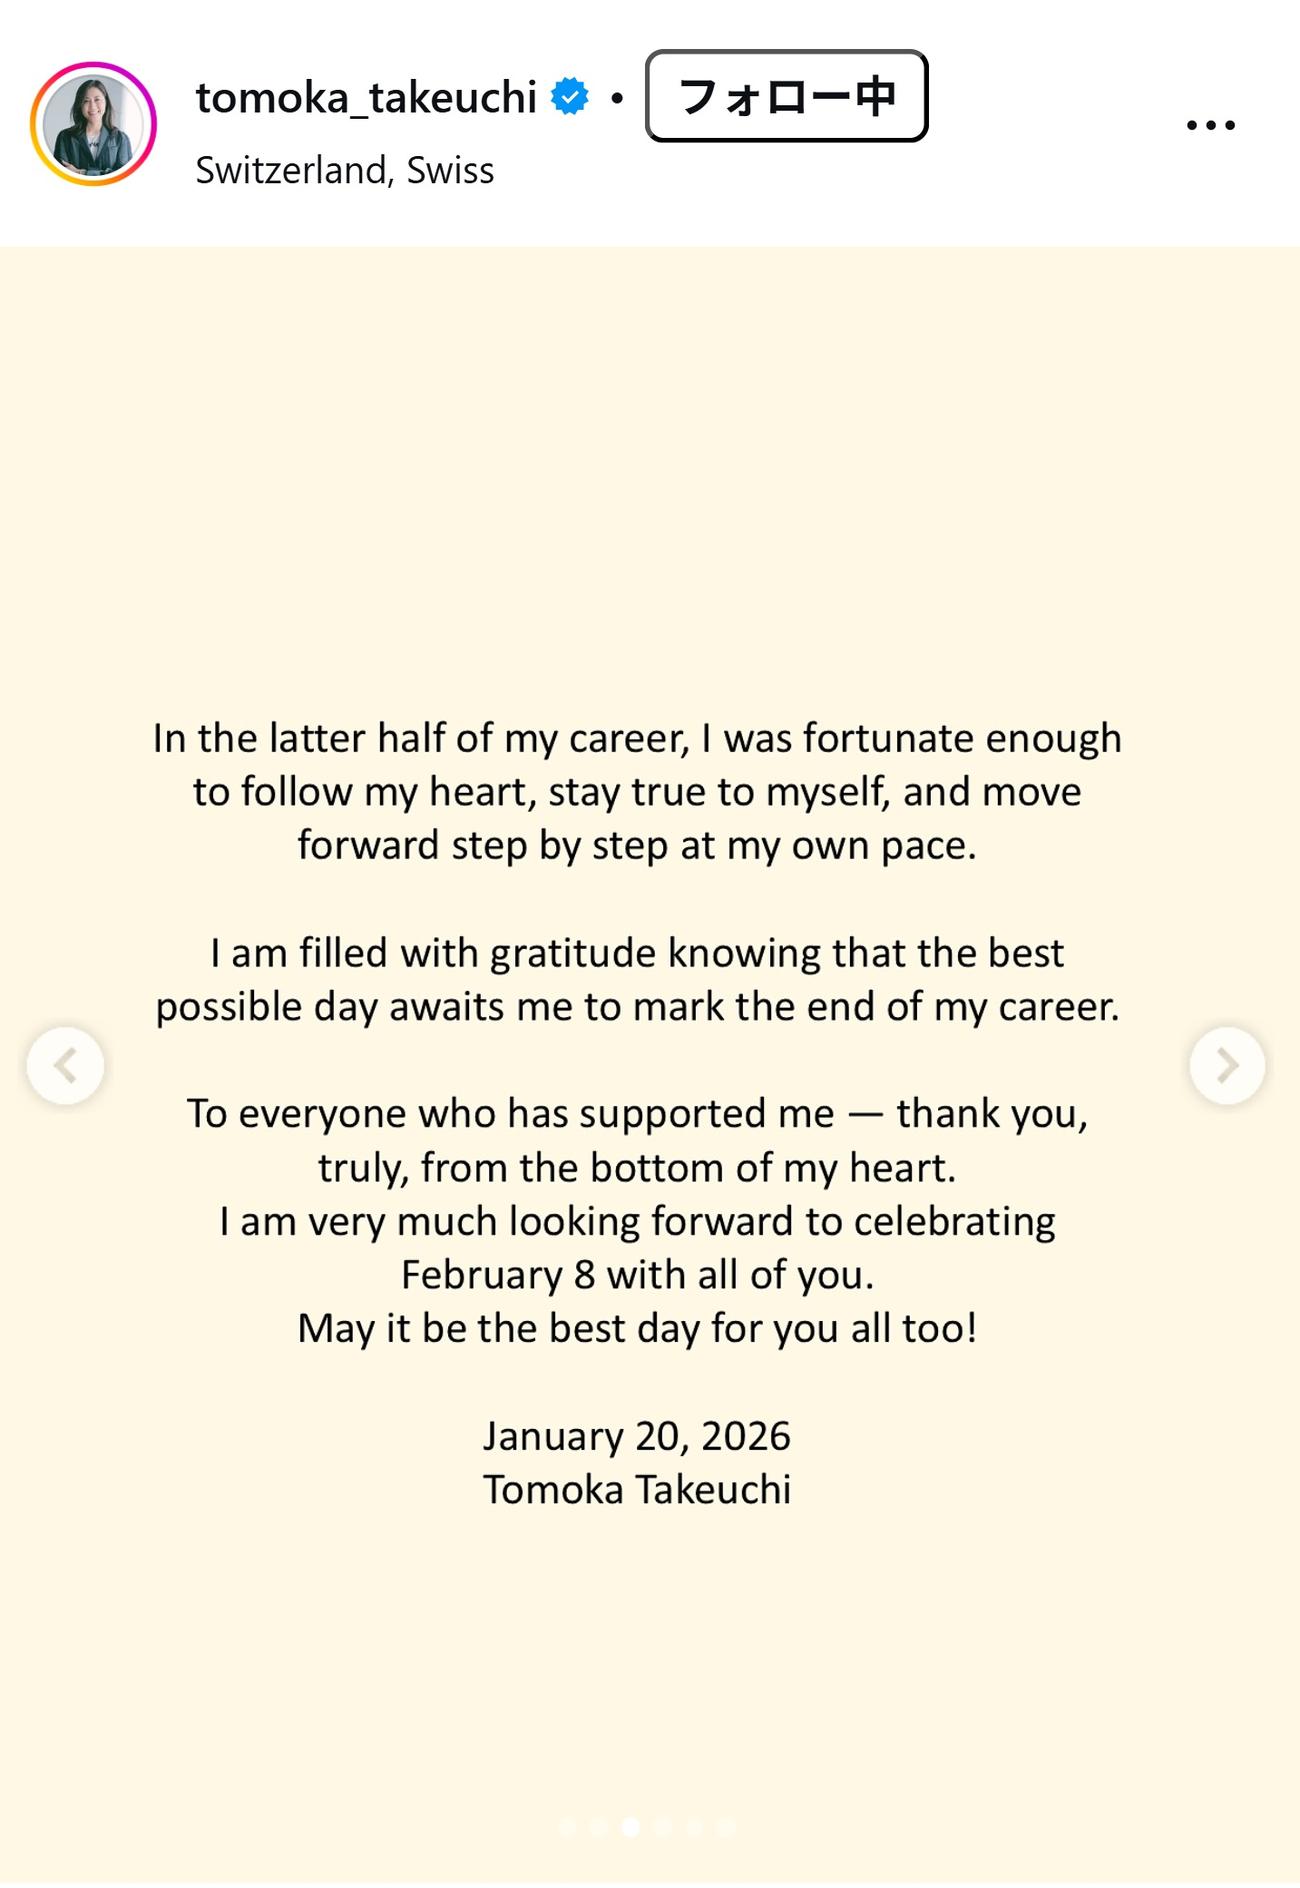 tomoka_takeuchi • フォロー中
Switzerland, Swiss
In the latter half of my career, I was fortunate enough
to follow my heart, stay true to myself, and move
forward step by step at my own pace.
I am filled with gratitude knowing that the best
possible day awaits me to mark the end of my career.
To everyone who has supported me — thank you,
truly, from the bottom of my heart.
I am very much looking forward to celebrating
February 8 with all of you.
May it be the best day for you all too!
January 20, 2026
Tomoka Takeuchi